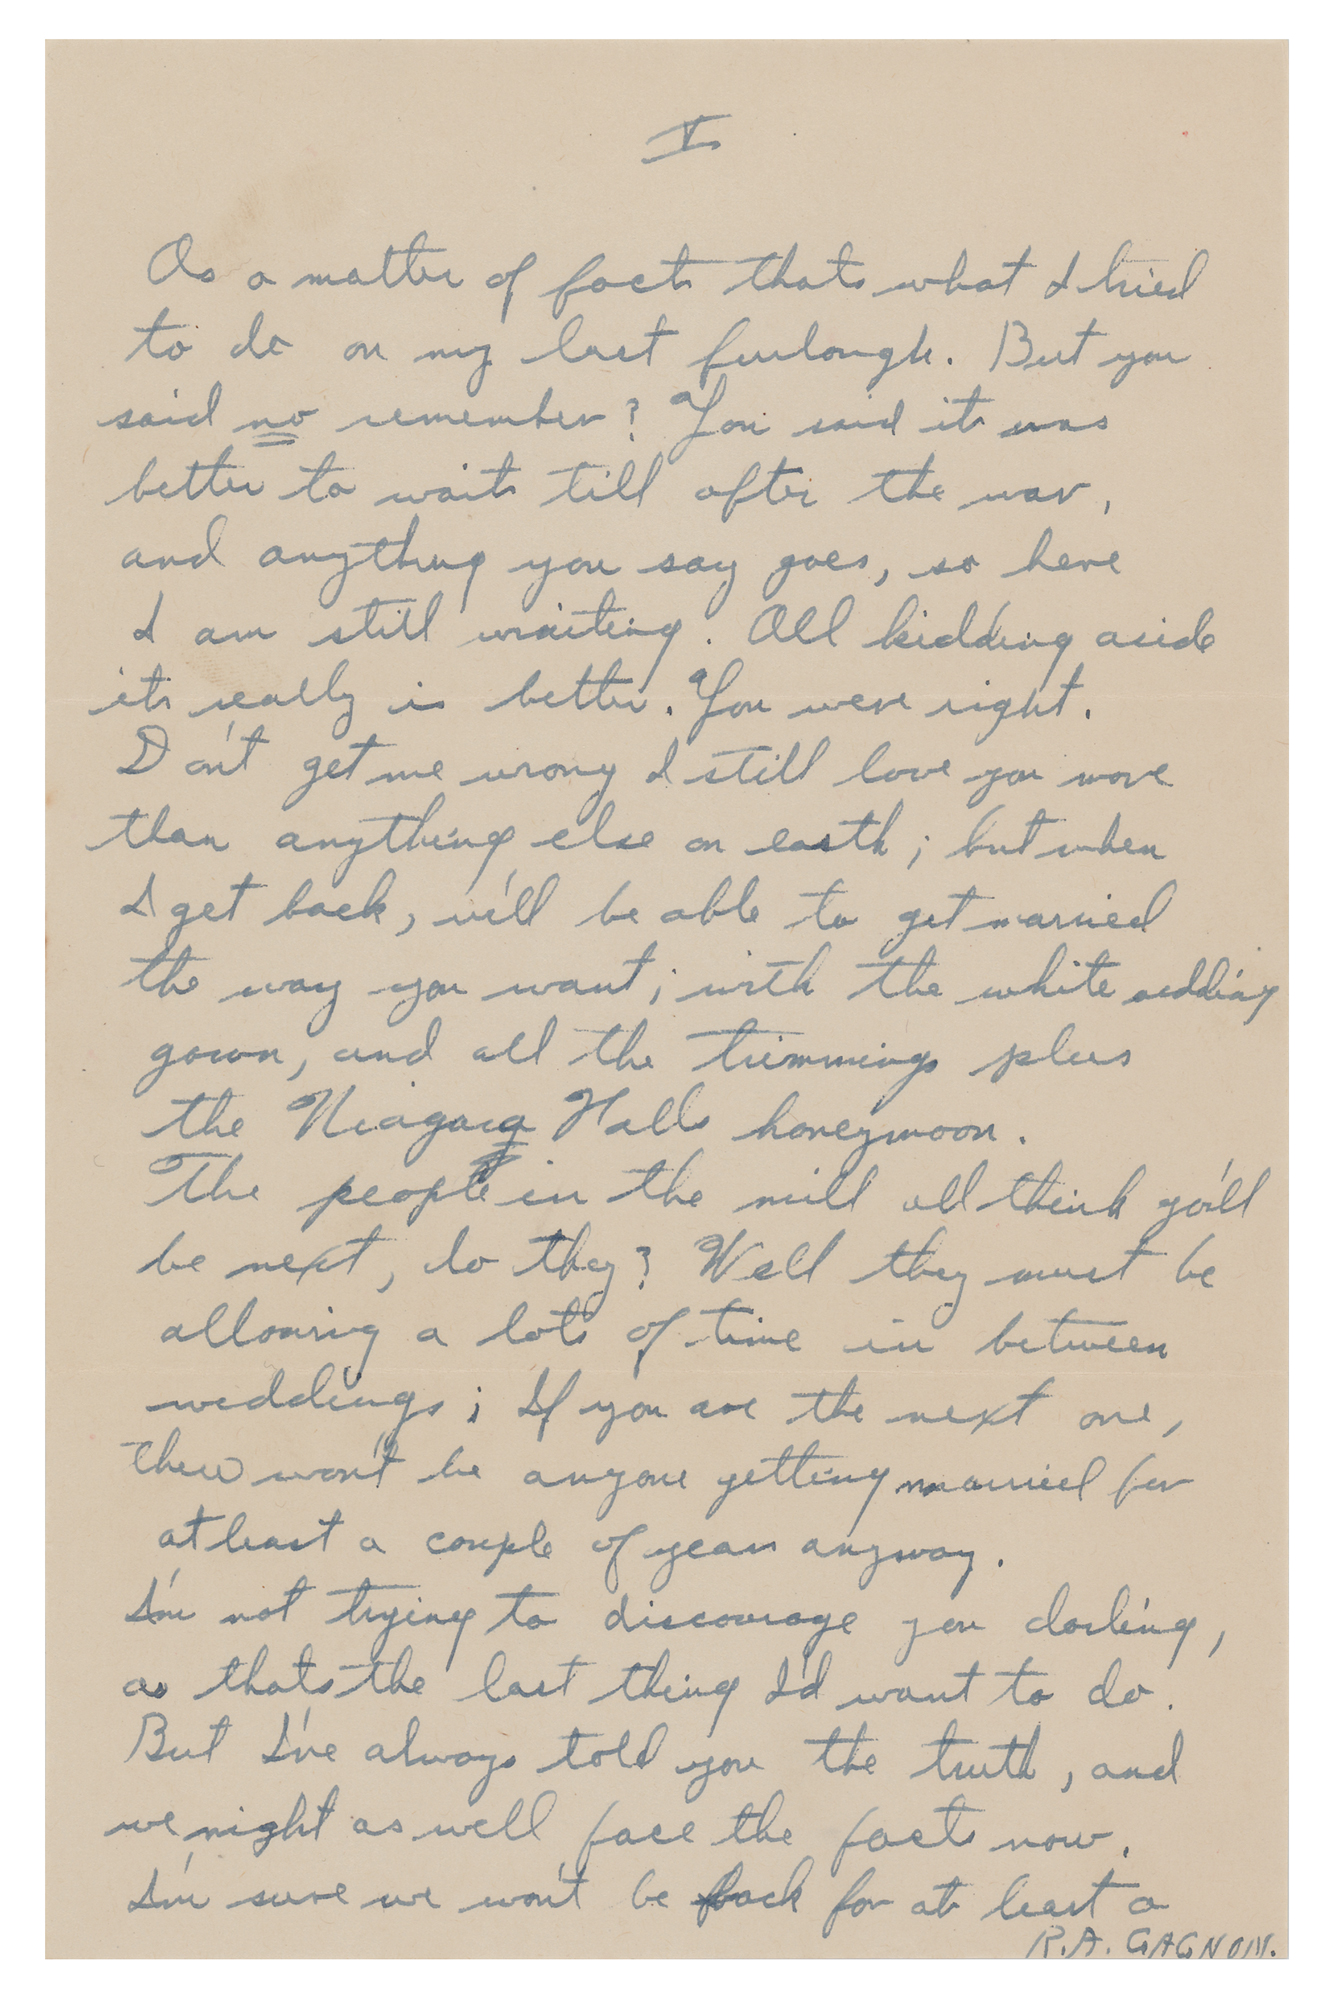 V
As a matter of fact thats what I tried
to do on my last furlough. But you
said no remember? You said it was
better to wait till after the war,
and anything you say goes, so here
I am still waiting. All kidding aside
it really is better. You were right.
Don't get me wrong I still love you more
than anything else on earth; but when
I get back, we'll be able to get married
the way you want; with the white wedding
gown, and all the trimmings plus
the Niagara Falls honeymoon.
The people in the mill all think yo'll
be next, do they? Well they must be
allowing a lots of time in between
weddings; If you are the next one,
there won't be anyone getting married for
at least a couple of years anyway.
I'm not trying to discourage you darling,
as thats the last thing I'd want to do.
But I've always told you the truth, and
we might as well face the facts now.
I'm sure we won't be back for at least a
R.A. GAGNON.